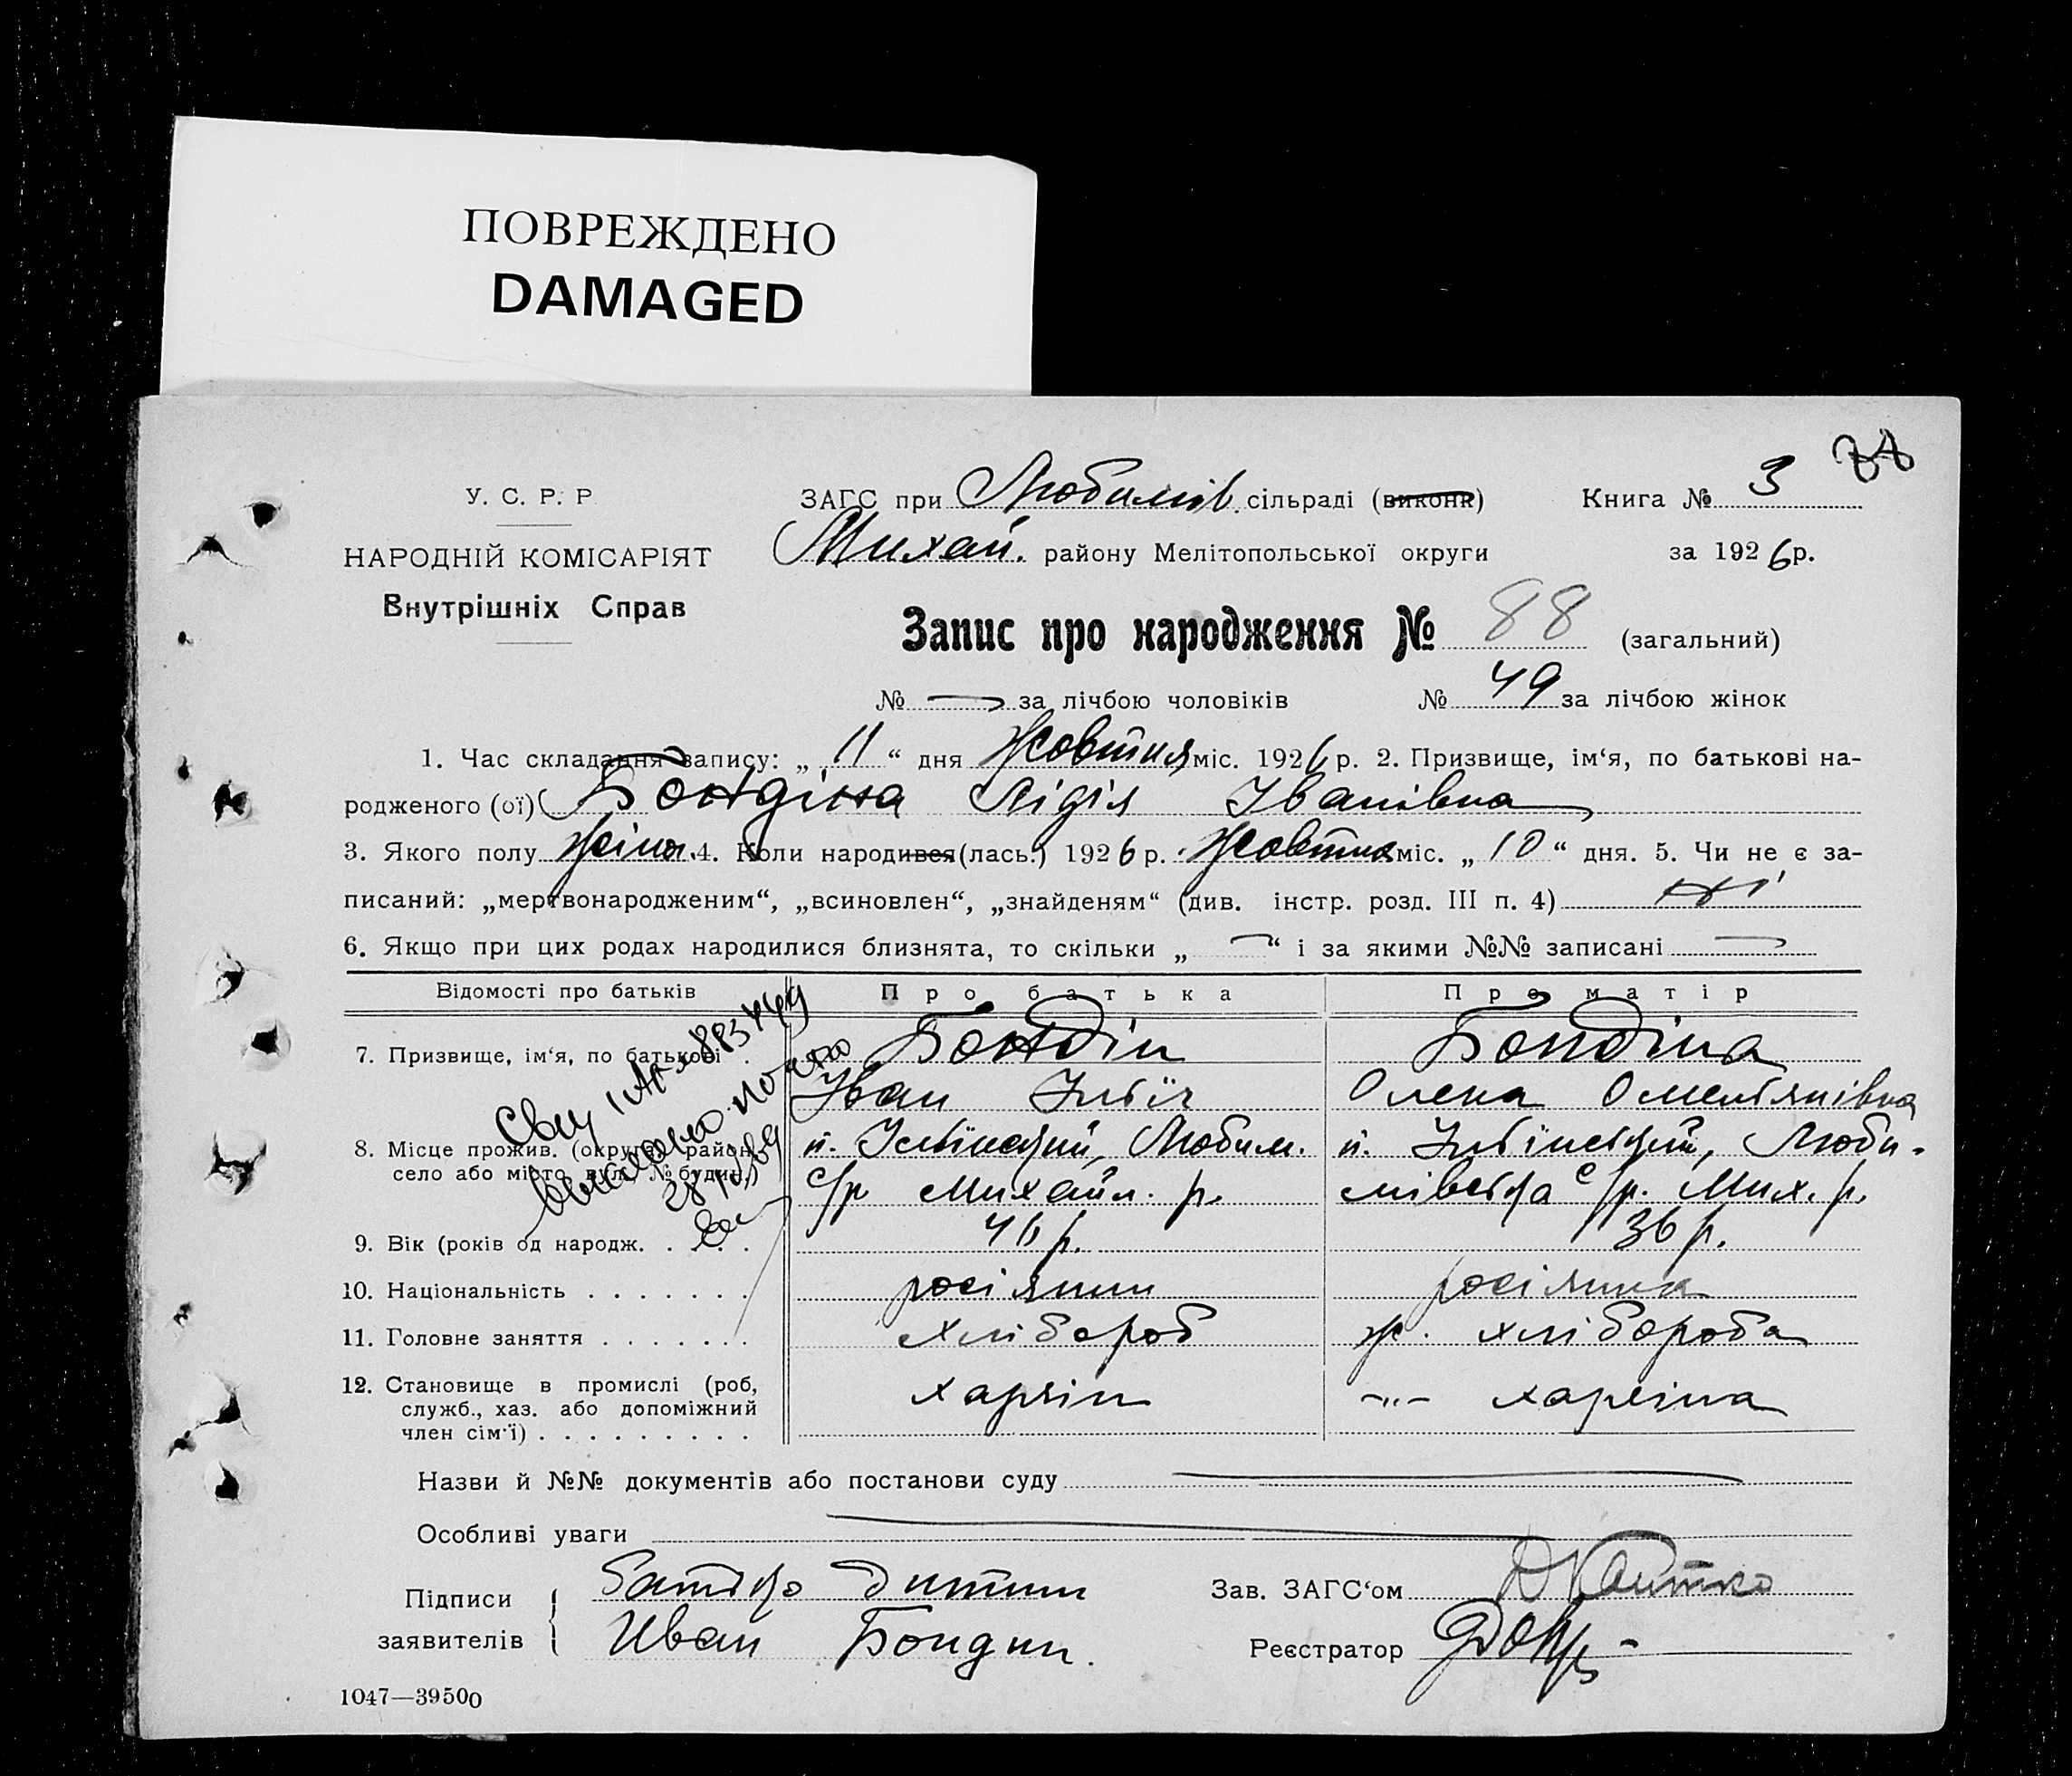 ПОВРЕЖДЕНО
DAMAGED
У. С. Р. Р.
НАРОДНІЙ КОМІСАРІЯТ
Внутрішніх Справ
ЗАГС при Любимів. сільраді (виконк)
Михай. району Мелітопольської округи
Книга № 3
за 1926 р.
Запис про народження № 88 (загальний)
№ — за лічбою чоловіків № 49 за лічбою жінок
1. Час складання запису: „ 11 “ дня Жовтня міс. 1926 р. 2. Призвище, ім‘я, по батькові на-
родженого (ої) Бондіна Лідія Іванівна
3. Якого полу жіноч. 4. Коли народився (лась.) 1926 р. Жовтня міс. „ 10 “ дня. 5. Чи не є за-
писаний: „мертвонародженим“, „всиновлен“, „знайденям“ (див. інстр. розд. III п. 4) ні
6. Якщо при цих родах народилися близнята, то скільки „ — “ і за якими №№ записані —
Відомості про батьків Про батька Про матір
7. Призвище, ім‘я, по батькові . Бондін Бондіна
Іван Ільїч Олена Омельянівна
8. Місце прожив. (округа, район, п. Ільїнский, Любим. п. Ільїнський, Люби-
село або місто, вул., № будин.) с/р Михайл. р. мівська с/р. Мих. р.
9. Вік (років од народж. . . . . . 46 р. 36 р.
10. Національність . . . . . . . росіянин росіянка
11. Головне заняття . . . . . . . хлібороб ж. хлібороба
12. Становище в промислі (роб, хазяїн -„- хазяїна
служб., хаз. або допоміжний
член сім‘ї) . . . . . . . . .
Назви й №№ документів або постанови суду
Особливі уваги
Підписи заявителів
Батько дитини
Иван Бондин.
Зав. ЗАГС‘ом
Реєстратор
1047—39500